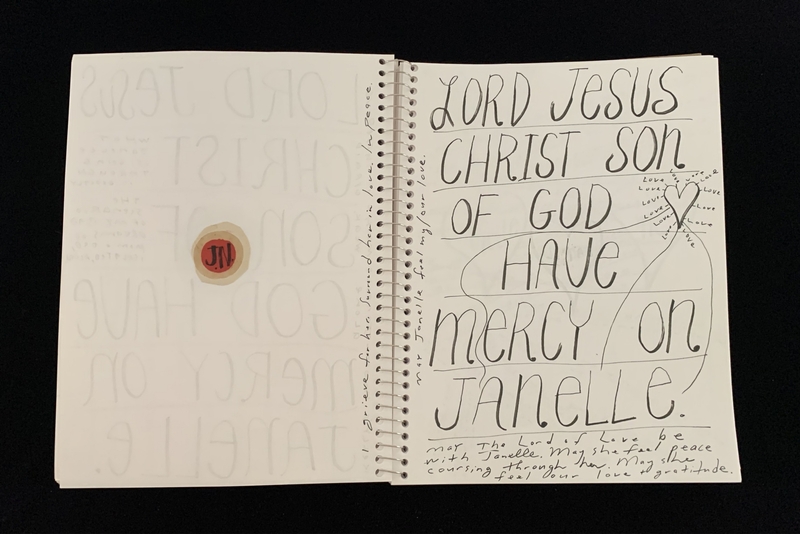 I grieve for her. Surround her in love. In peace.
May Janelle feel my/our love.
LORD JESUS
CHRIST SON
OF GOD
HAVE
MERCY ON
JANELLE.
Love Love Love Love Love Love Love Love Love Love Love Love
May The Lord of Love be
with Janelle. May she feel peace
coursing through her. May she
feel our love + gratitude.